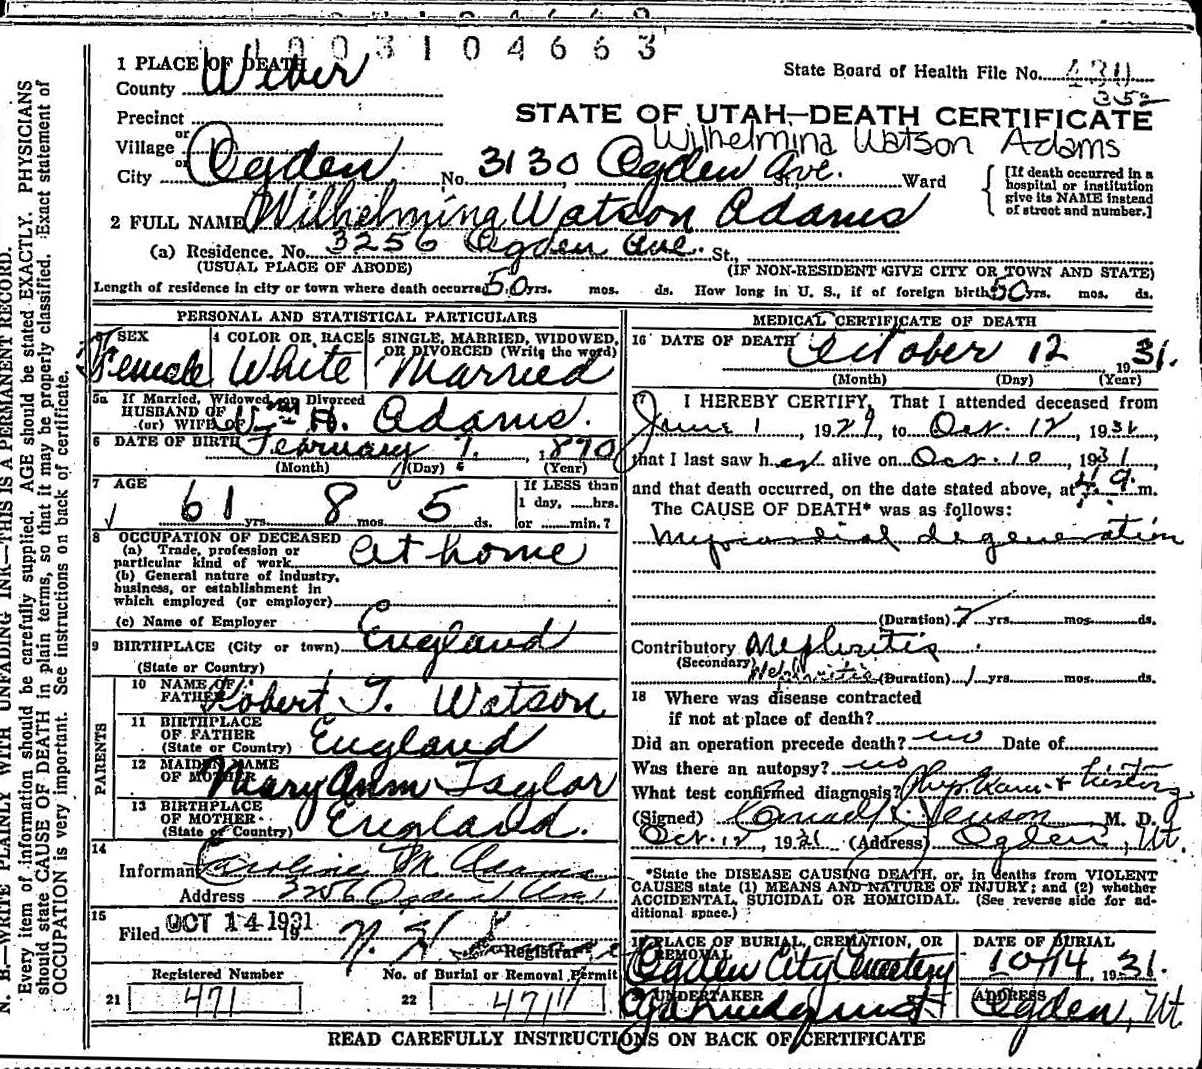 1003104663
1 PLACE OF DEATH
County Weber
State Board of Health File No. 430
352
STATE OF UTAH—DEATH CERTIFICATE
Wilhelmina Watson Adams
Precinct
or
Village
or
City Ogden No. 3130 Ogden Ave. St., Ward
[If death occurred in a hospital or institution give its NAME instead of street and number.]
2 FULL NAME Wilhelmina Watson Adams
(a) Residence. No. 3256 Ogden Ave. St.,
(USUAL PLACE OF ABODE) (IF NON-RESIDENT GIVE CITY OR TOWN AND STATE)
Length of residence in city or town where death occurred 50 yrs. mos. ds. How long in U. S., if of foreign birth? 50 yrs. mos. ds.
PERSONAL AND STATISTICAL PARTICULARS
3 SEX
Female
4 COLOR OR RACE
White
5 SINGLE, MARRIED, WIDOWED, OR DIVORCED (Write the word)
Married
5a If Married, Widowed, or Divorced
HUSBAND OF
(or) WIFE OF Wm H. Adams.
6 DATE OF BIRTH February 7, 1870
(Month) (Day) (Year)
7 AGE
61 yrs. 8 mos. 5 ds.
If LESS than
1 day, hrs.
or min.?
8 OCCUPATION OF DECEASED
(a) Trade, profession or
particular kind of work At home
(b) General nature of industry,
business, or establishment in
which employed (or employer)
(c) Name of Employer
9 BIRTHPLACE (City or town) England
(State or Country)
PARENTS
10 NAME OF
FATHER Robert T. Watson
11 BIRTHPLACE
OF FATHER
(State or Country) England
12 MAIDEN NAME
OF MOTHER Mary Ann Taylor
13 BIRTHPLACE
OF MOTHER
(State or Country) England.
14
Informant Caroline M. Adams
Address 3256 Ogden Ave
15
Filed OCT 14 1931 19 N. H. Registrar
Registered Number
21 471
No. of Burial or Removal Permit
22 471
MEDICAL CERTIFICATE OF DEATH
16 DATE OF DEATH October 12 1931.
(Month) (Day) (Year)
17 I HEREBY CERTIFY, That I attended deceased from
June 1, 1929, to Oct. 12, 1931,
that I last saw her alive on Oct. 10, 1931,
and that death occurred, on the date stated above, at m.
The CAUSE OF DEATH* was as follows:
Myocardial degeneration
(Duration) 2 yrs. mos. ds.
Contributory Nephritis
(Secondary) Nephritis (Duration) 1 yrs. mos. ds.
18 Where was disease contracted
if not at place of death?
Did an operation precede death? no Date of
Was there an autopsy? no
What test confirmed diagnosis? Phys. Exam. & history
(Signed) Conrad Jenson M. D.
Oct. 12, 1931 (Address) Ogden, Ut.
*State the DISEASE CAUSING DEATH, or, in deaths from VIOLENT
CAUSES state (1) MEANS AND NATURE OF INJURY; and (2) whether
ACCIDENTAL, SUICIDAL OR HOMICIDAL. (See reverse side for ad-
ditional space.)
19 PLACE OF BURIAL, CREMATION, OR
REMOVAL
Ogden City Cemetery
DATE OF BURIAL
10/14 1931.
20 UNDERTAKER
ADDRESS
Ogden, Ut
READ CAREFULLY INSTRUCTIONS ON BACK OF CERTIFICATE
N. B.—WRITE PLAINLY WITH UNFADING INK—THIS IS A PERMANENT RECORD.
Every item of information should be carefully supplied. AGE should be stated EXACTLY. PHYSICIANS
should state CAUSE OF DEATH in plain terms, so that it may be properly classified. Exact statement of
OCCUPATION is very important. See instructions on back of certificate.